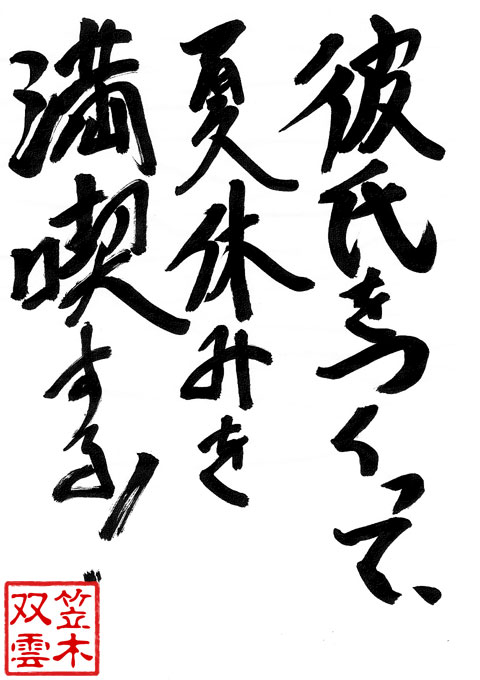 彼氏をつくって、
夏休みを
満喫する!
笠木
双雲